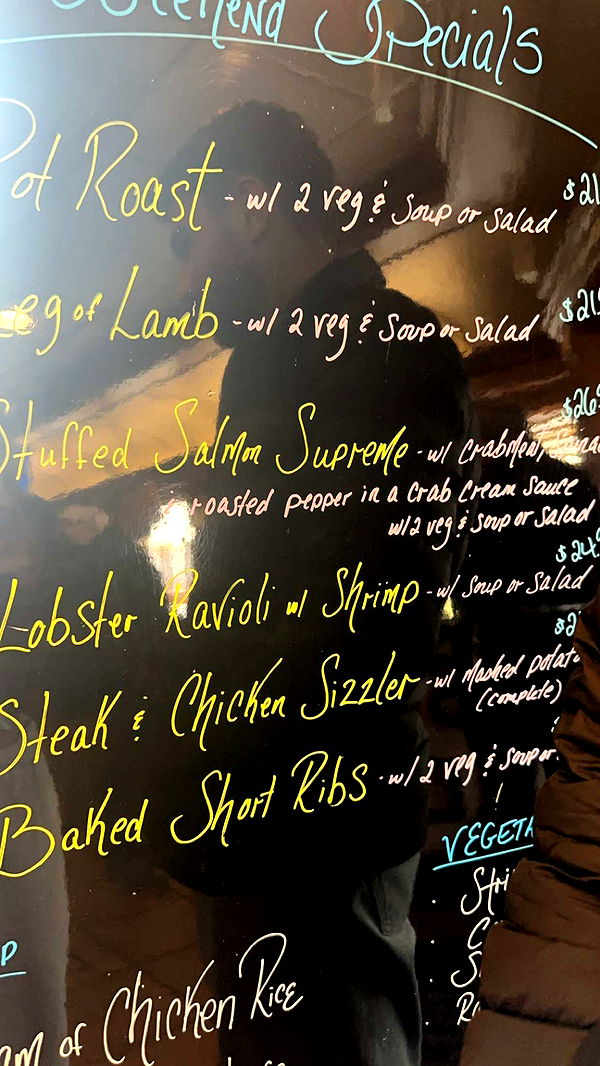 Weekend Specials
Pot Roast - w/ 2 veg & soup or salad $21
Leg of Lamb - w/ 2 veg & soup or salad $21
Stuffed Salmon Supreme - w/ crabmeat,
roasted pepper in a crab cream sauce $26
w/ 2 veg & soup or salad
Lobster Ravioli w/ Shrimp - w/ soup or salad $24
Steak & Chicken Sizzler - w/ Mashed Potato $2
(complete)
Baked Short Ribs - w/ 2 veg & soup or
VEGETA
Stri
P
Chicken Rice
of